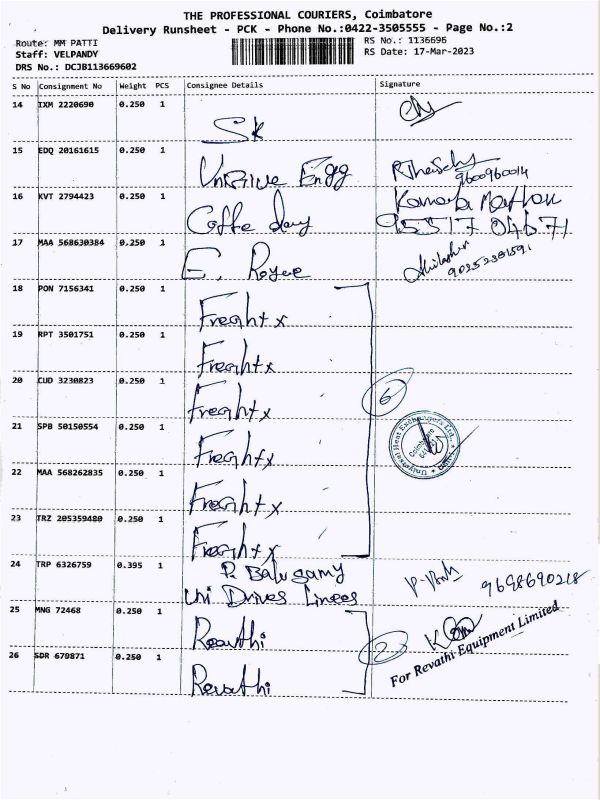 THE PROFESSIONAL COURIERS, Coimbatore
Delivery Runsheet - PCK - Phone No.:0422-3505555 - Page No.:2
Route: MM PATTI
Staff: VELPANDY
DRS No.: DCJB113669602
RS No.: 1136696
RS Date: 17-Mar-2023
S No Consignment No Weight PCS Consignee Details Signature
14 IXM 2220690 0.250 1 SK
15 EDQ 20161615 0.250 1 Engg 9600960014
16 KVT 2794423 0.250 1 Coffe day 95517 04671
17 MAA 568630384 0.250 1 E. Royce
18 PON 7156341 0.250 1 Freahtx
19 RPT 3501751 0.250 1 Freahtx
20 CUD 3230823 0.250 1 Freahtx
6
21 SPB 50150554 0.250 1 Freahtx
Universal Heat Exchangers Ltd.
Coimbatore
22 MAA 568262835 0.250 1 Freahtx
23 TRZ 205359480 0.250 1 Freahtx
24 TRP 6326759 0.395 1 P. Balusamy
Uni Drives Linees 9698690218
25 MNG 72468 0.250 1 Revathi
2
For Revathi Equipment Limited
26 SDR 679871 0.250 1 Revathi